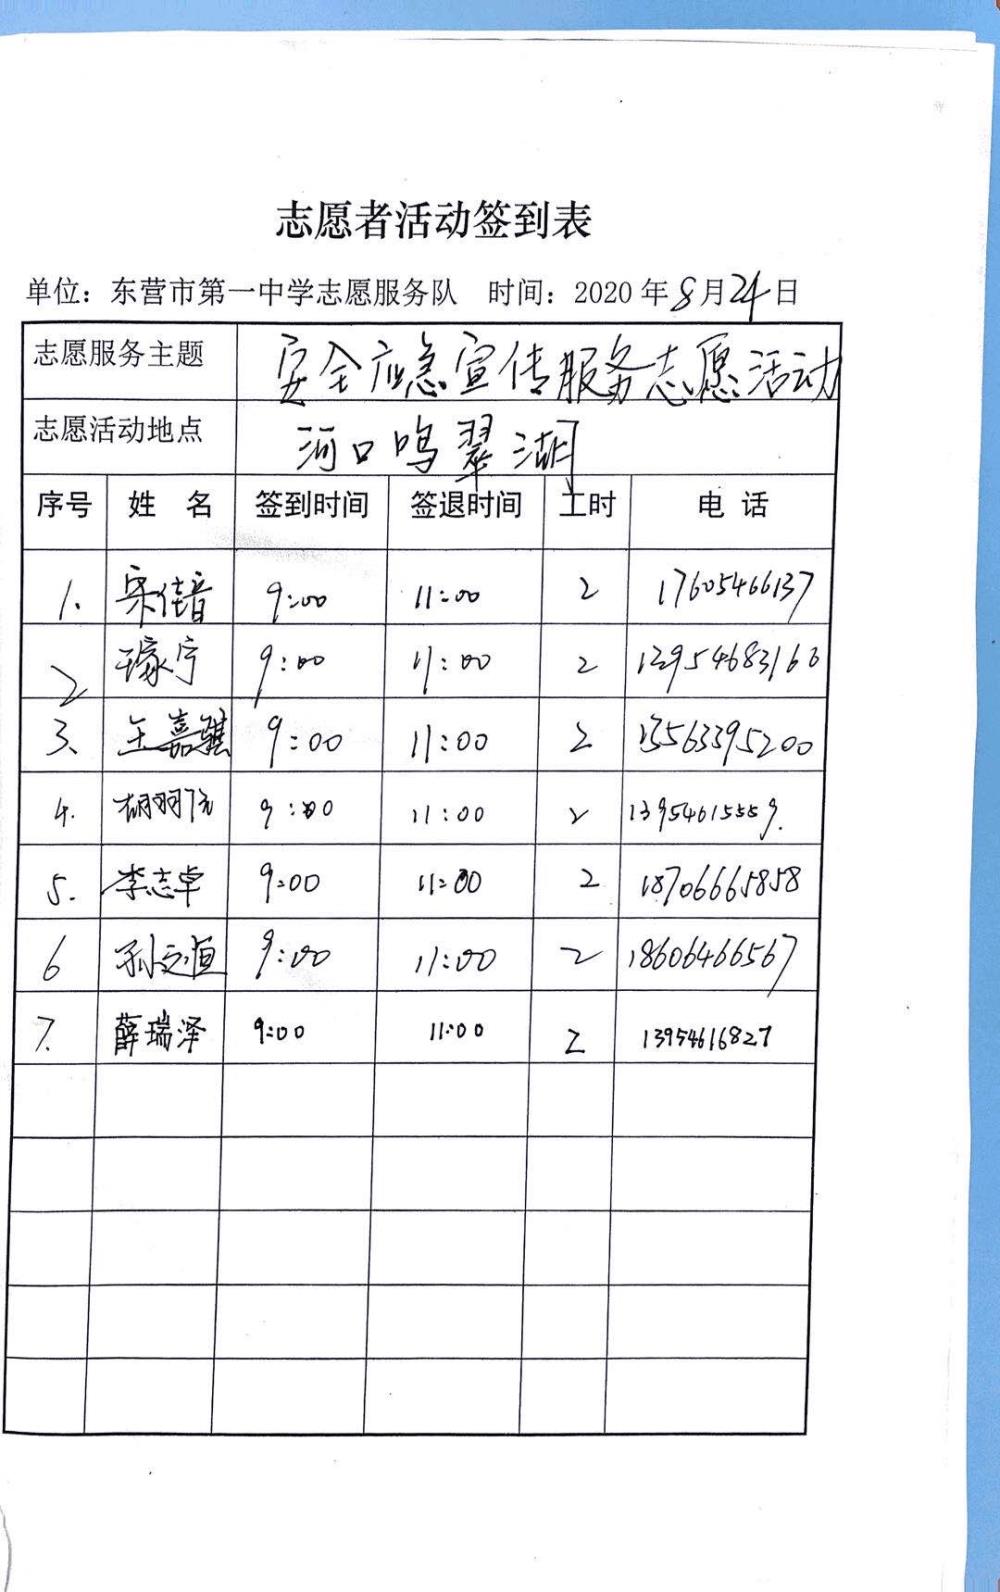 志愿者活动签到表
单位：东营市第一中学志愿服务队 时间：2020年8月24日
志愿服务主题 安全应急宣传服务志愿活动
志愿活动地点 河口鸣翠湖
序号 姓名 签到时间 签退时间 工时 电话
1. 宋佳音 9:00 11:00 2 17605466137
2 王家宁 9:00 11:00 2 13954683166
3、 王嘉骐 9:00 11:00 2 13563395200
4. 9:00 11:00 2 13954615559.
5. 李志卓 9:00 11:00 2 18706665858
6 孙之恒 9:00 11:00 2 18606466567
7. 薛瑞泽 9:00 11:00 2 13954616827